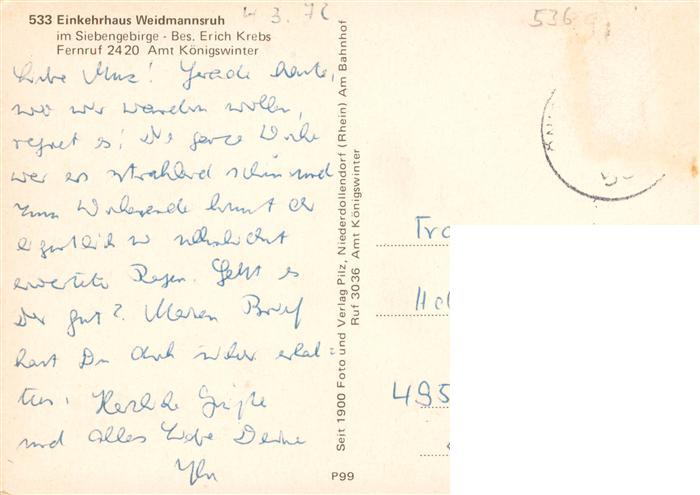 4.3.72
536
533 Einkehrhaus Weidmannsruh
im Siebengebirge - Bes. Erich Krebs
Fernruf 2420 Amt Königswinter
Liebe Mus! Gerade heute,
wo wir wandern wollen,
regnet es! Die ganze Woche
war es strahlend schön und
zum Wochenende kommt der
eigentlich so sehnlichst
erwartete Regen. Geht es
Dir gut? Meinen Brief
hast Du doch sicher erhal=
ten. Herzliche Grüße
und alles Liebe Deine
Seit 1900 Foto und Verlag Pilz, Niederdollendorf (Rhein) Am Bahnhof
Ruf 3036 Amt Königswinter
P99
Fra
495